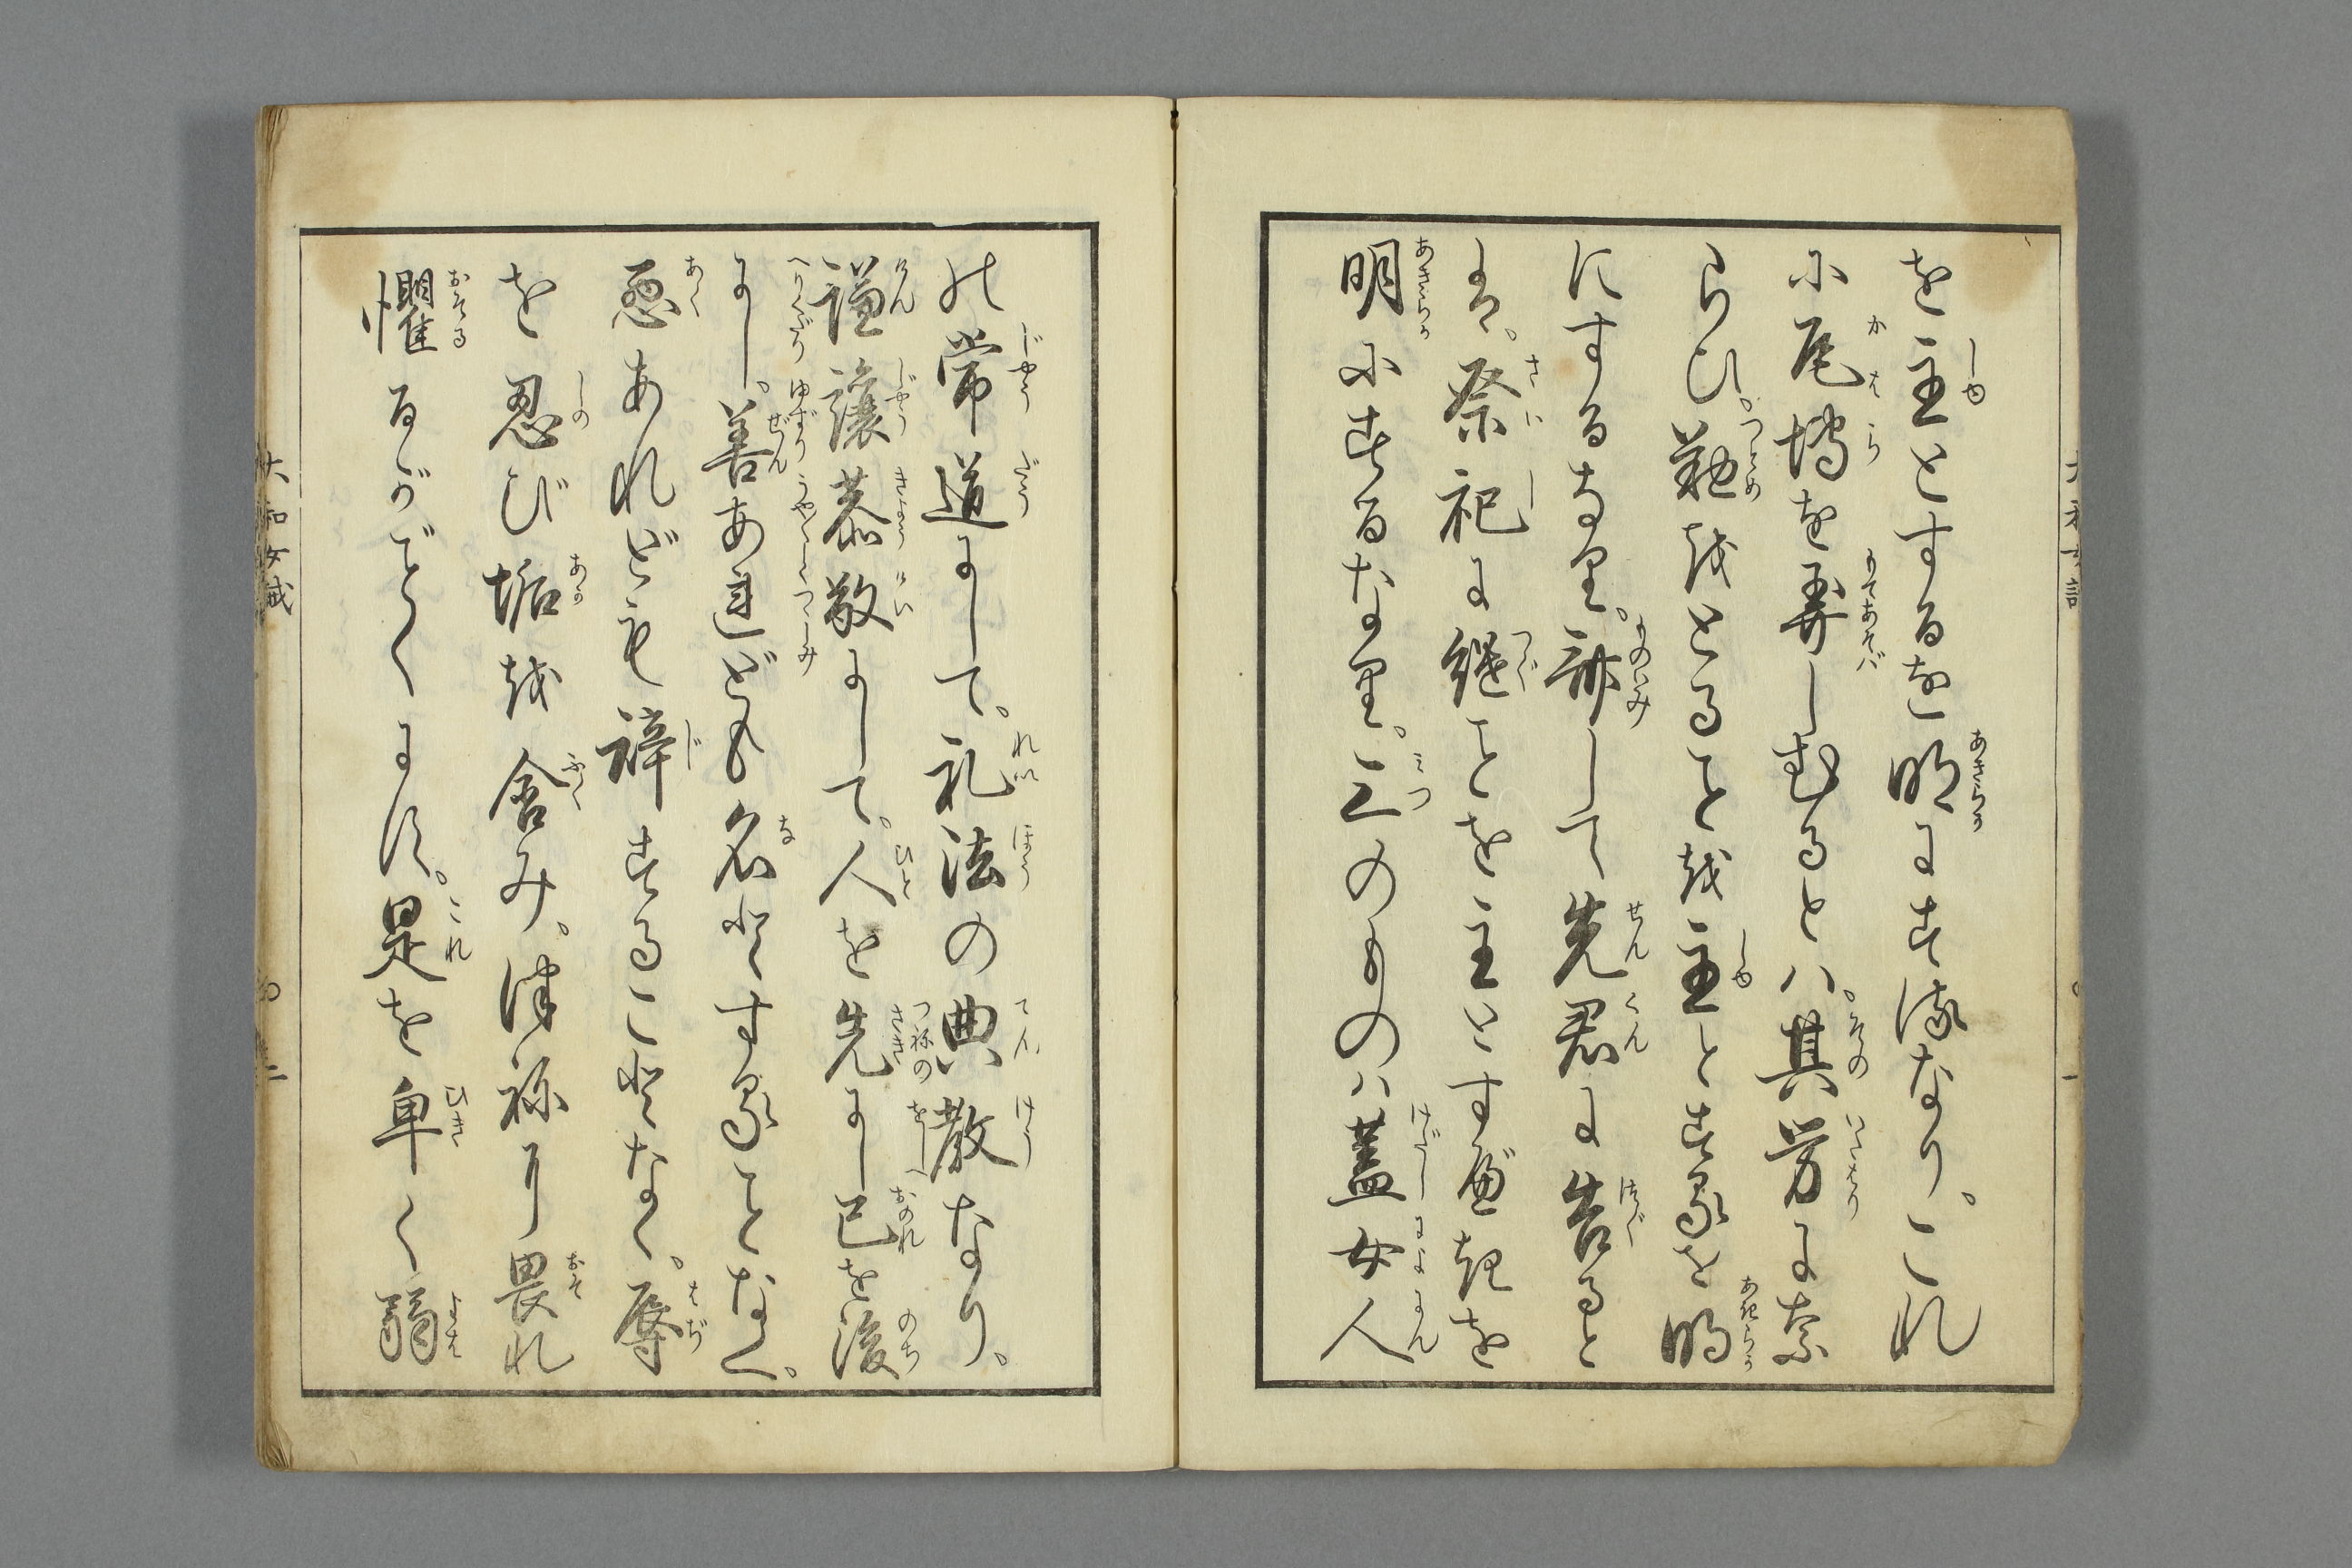 を主とするを明にす流なり。これ
に尾塼を弄しむるとハ。其労に奈
らひ。勤越とること越主とするを明
にするなり。齋して先君に告ると
は。祭祀に継ことを主とすべきを
明にするなり。三のものハ蓋女人
の常道にして。礼法の典教なり。
謙譲恭敬にして。人を先にし己を後
にし。善あれども名とすることなく。
悪あれども辞することなく。辱
を忍び垢越含み。津祢に畏れ
懼るがごとくにす。是を卑く弱
大和女誡